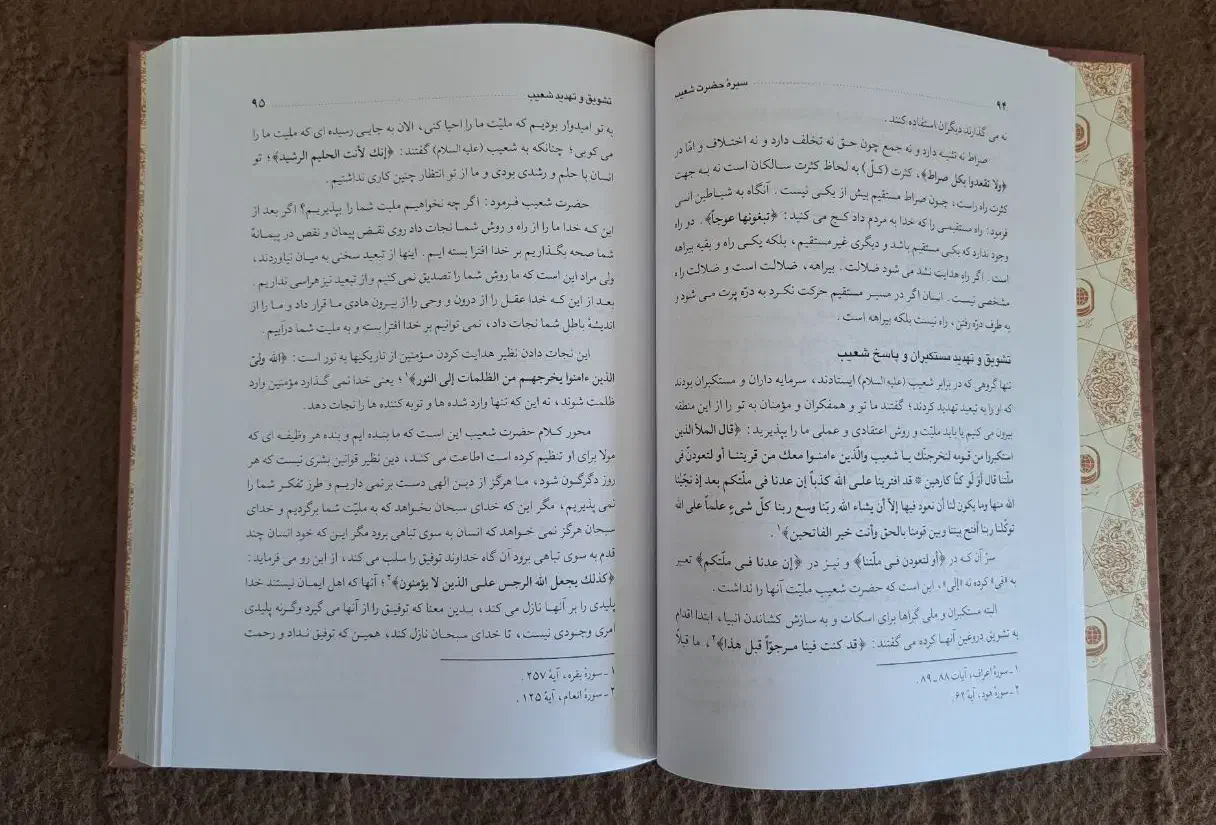 ۹۴ سیرهٔ حضرت شعیب
نه می گذارند دیگران استفاده کنند .
صراط نه تثنیه دارد و نه جمع چون حق نه تخلف دارد و نه اختلاف و امّا در
﴿ولا تقعدوا بکل صراط﴾، کثرت (کلّ) به لحاظ کثرت سالکان است نه به جهت
کثرت راه راست، چون صراط مستقیم بیش از یکی نیست . آنگاه به شیاطین انسی
فرمود: راه مستقیمی را که خدا به مردم داد کج می کنید: ﴿تبغونها عوجاً﴾. دو راه
وجود ندارد که یکی مستقیم باشد و دیگری غیر مستقیم، بلکه یکی راه و بقیه بیراهه
است . اگر راهِ هدایت نشد می شود ضلالت . بیراهه، ضلالت است و ضلالت راه
مشخصی نیست. انسان اگر در مسیر مستقیم حرکت نکرد به درّه پرت می شود و
به طرف درّه رفتن، راه نیست بلکه بیراهه است .
تشویق و تهدید مستکبران و پاسخ شعیب
تنها گروهی که در برابر شعیب (علیه السلام) ایستادند، سرمایه داران و مستکبران بودند
که او را به تبعید تهدید کردند؛ گفتند ما تو و همفکران و مؤمنان به تو را از این منطقه
بیرون می کنیم یا باید ملیّت و روش اعتقادی و عملی ما را بپذیرید: ﴿قال الملأ الذین
استکبروا من قومه لنخرجنّک یا شعیب والّذین ءامنوا معک من قریتنا أو لتعودنّ فی
ملّتنا قال أوَ لَو کنّا کارهین * قد افترینا علی الله کذباً إن عدنا فی ملّتکم بعد إذ نجّینا
الله منها وما یکون لنا أن نعود فیها إلاّ أن یشاء الله ربّنا وسع ربنا کلّ شیءٍ علماً علی الله
توکّلنا ربنا أفتح بیننا وبین قومنا بالحق وأنت خیر الفاتحین﴾۱.
سرّ آن که در ﴿أو لتعودن فی ملّتنا﴾ و نیز در ﴿إن عدنا فی ملّتکم﴾ تعبیر
به «فی» کرده نه «إلی»، این است که حضرت شعیب ملیّت آنها را نداشت .
البته مستکبران و ملی گراها برای اسکات و به سازش کشاندن انبیا، ابتدا اقدام
به تشویق دروغین آنها کرده می گفتند: ﴿قد کنت فینا مرجوّاً قبل هذا﴾۲، ما قبلاً
۱ ـ سورهٔ اعراف، آیات ۸۸ ـ ۸۹ .
۲ ـ سورهٔ هود، آیهٔ ۶۲ .
تشویق و تهدید شعیب ۹۵
به تو امیدوار بودیم که ملیّت ما را احیا کنی، الان به جایی رسیده ای که ملیت ما را
می کوبی؛ چنانکه به شعیب (علیه السلام) گفتند: ﴿إنك لأنت الحلیم الرشید﴾؛ تو
انسان با حلم و رشدی بودی و ما از تو انتظار چنین کاری نداشتیم .
حضرت شعیب فرمود: اگر چه نخواهیم ملیت شما را بپذیریم؟ اگر بعد از
این که خدا ما را از راه و روش شما نجات داد روی نقض پیمان و نقص در پیمانهٔ
شما صحه بگذاریم بر خدا افترا بسته ایم . اینها از تبعید سخنی به میان نیاوردند،
ولی مراد این است که ما روش شما را تصدیق نمی کنیم و از تبعید نیز هراسی نداریم .
بعد از این که خدا عقل را از درون و وحی را از بیرون هادی ما قرار داد و ما را از
اندیشهٔ باطل شما نجات داد، نمی توانیم بر خدا افترا بسته و به ملیت شما درآییم .
این نجات دادن نظیر هدایت کردن مؤمنین از تاریکیها به نور است: ﴿الله ولیّ
الذین ءامنوا یخرجهم من الظلمات إلی النور﴾۱؛ یعنی خدا نمی گذارد مؤمنین وارد
ظلمت شوند، نه این که تنها وارد شده ها و توبه کننده ها را نجات دهد.
محور کلام حضرت شعیب این است که ما بنده ایم و بنده هر وظیفه ای که
مولا برای او تنظیم کرده است اطاعت می کند، دین نظیر قوانین بشری نیست که هر
روز دگرگون شود، ما هرگز از دین الهی دست برنمی داریم و طرز تفکر شما را
نمی پذیریم، مگر این که خدای سبحان بخواهد که به ملیّت شما برگردیم و خدای
سبحان هرگز نمی خواهد که انسان به سوی تباهی برود مگر این که خود انسان چند
قدم به سوی تباهی برود آن گاه خداوند توفیق را سلب می کند، از این رو می فرماید:
﴿کذلك یجعل الله الرجس علی الذین لا یؤمنون﴾۲؛ آنها که اهل ایمان نیستند خدا
پلیدی را بر آنها نازل می کند، بدین معنا که توفیق را از آنها می گیرد وگرنه پلیدی
امری وجودی نیست، تا خدای سبحان نازل کند، همین که توفیق نداد و رحمت
۱ ـ سورهٔ بقره، آیهٔ ۲۵۷ .
۲ ـ سورهٔ انعام، آیهٔ ۱۲۵ .